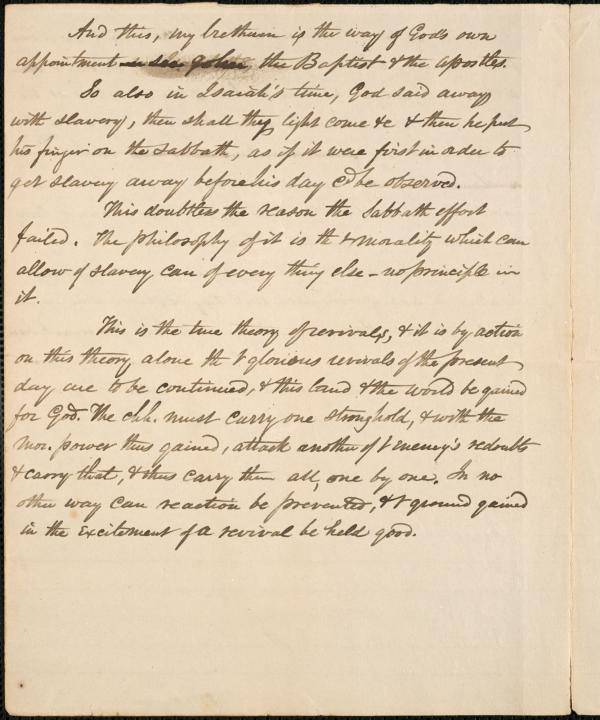 And this, my brethren is the way of God's own
appointment in see John, the Baptist & the apostles.
So also in Isaiah's time, God said away
with slavery, then shall thy light come &c & then he put
his finger on the Sabbath, as if it were first in order to
get slavery away before his day cd be observed.
This doubtless the reason the Sabbath effort
failed. The philosophy of it is tht morality which can
allow of slavery can of every thing else - no principle in
it.
This is the true theory of revivals, & it is by action
on this theory, alone tht glorious revivals of the present
day are to be continued, & this land & the world be gained
for God. The chh. must carry one stronghold, & with the
mor. power thus gained, attack another of t enemy's redoubts
& carry that, & thus carry them all, one by one. In no
other way can reaction be prevented, & t ground gained
in the excitement of a revival be held good.